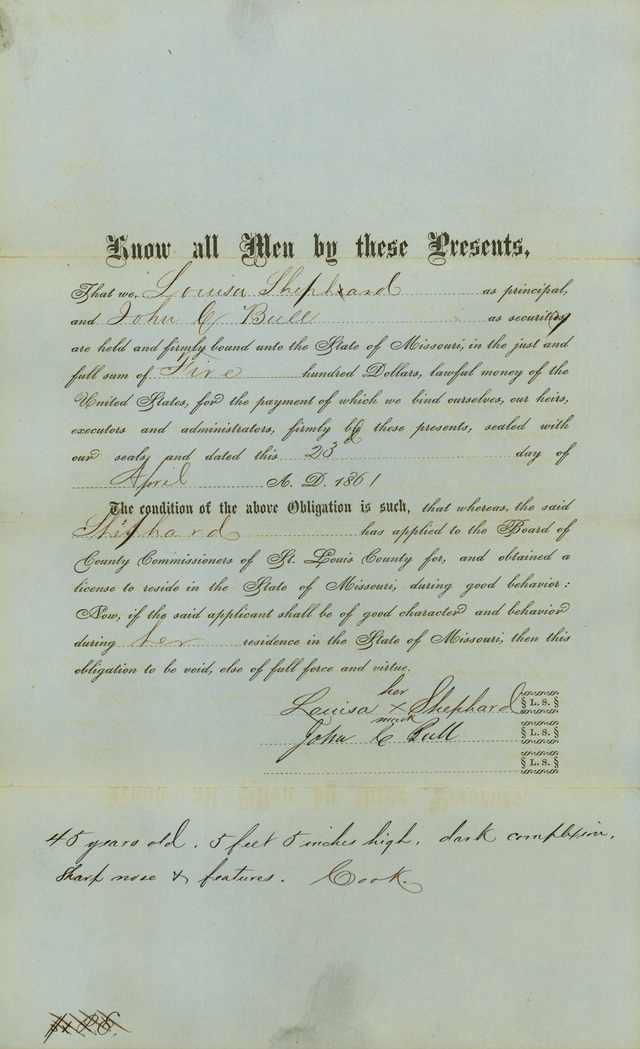 Know all Men by these Presents,
That we, Louisa Shephard as principal,
and John C Bull as security
are held and firmly bound unto the State of Missouri, in the just and
full sum of Five hundred Dollars, lawful money of the
United States, for the payment of which we bind ourselves, our heirs,
executors and administrators, firmly by these presents, sealed with
our seals, and dated this 23d day of
April A. D. 1861
The condition of the above Obligation is such, that whereas, the said
Shephard has applied to the Board of
County Commissioners of St. Louis County for, and obtained a
license to reside in the State of Missouri, during good behavior:
Now, if the said applicant shall be of good character and behavior
during her residence in the State of Missouri, then this
obligation to be void, else of full force and virtue.
her
Louisa x Shephard L. S.
mark
John C Bull L. S.
L. S.
45 years old. 5 feet 5 inches high. dark complexion.
Sharp nose & features. Cook.